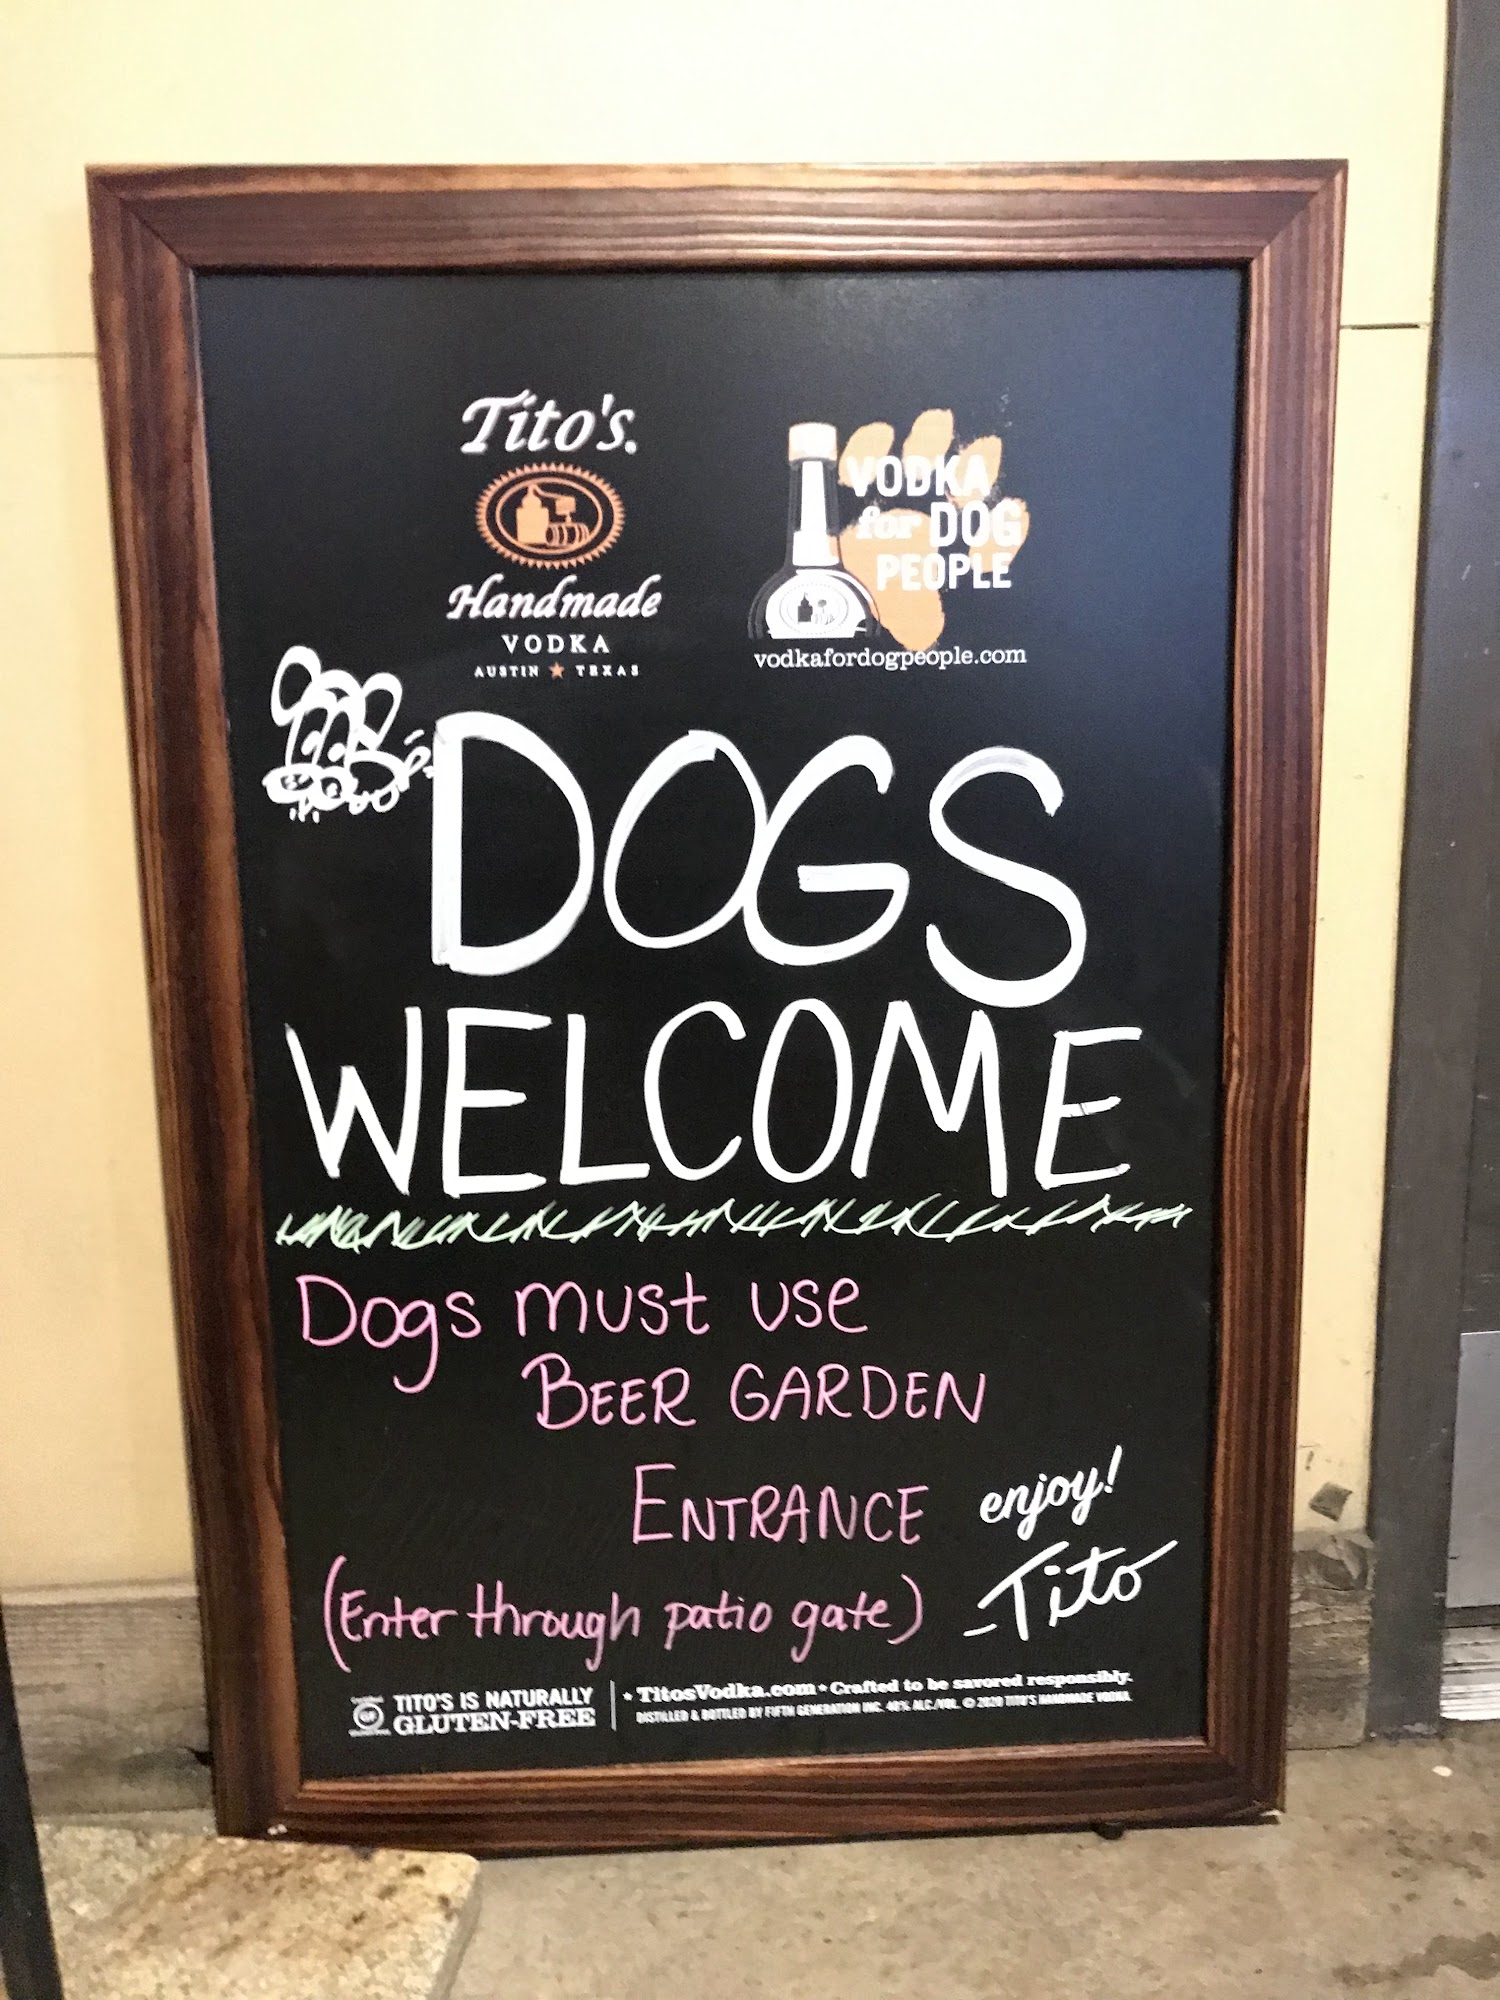 Tito's.
Handmade
VODKA
AUSTIN ★ TEXAS
VODKA
for DOG
PEOPLE
vodkafordogpeople.com
DOGS
WELCOME
Dogs must use
BEER GARDEN
ENTRANCE
(Enter through patio gate)
enjoy!
-Tito
GF
TITO'S IS NATURALLY
GLUTEN-FREE
• TitosVodka.com • Crafted to be savored responsibly.
DISTILLED & BOTTLED BY FIFTH GENERATION INC. 40% ALC./VOL. © 2020 TITO'S HANDMADE VODKA.